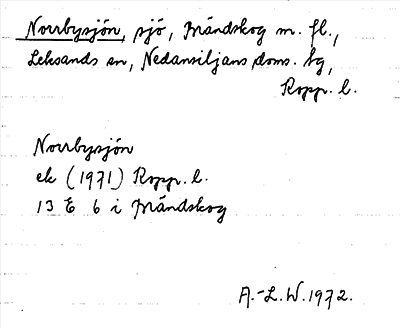 Norrbysjön, sjö, Mändskog m. fl.,
Leksands sn, Nedansiljans doms. hg,
Kopp. l.
Norrbysjön
ek (1971) Kopp. l.
13 E 6 i Mändskog
A.-L. W. 1972.